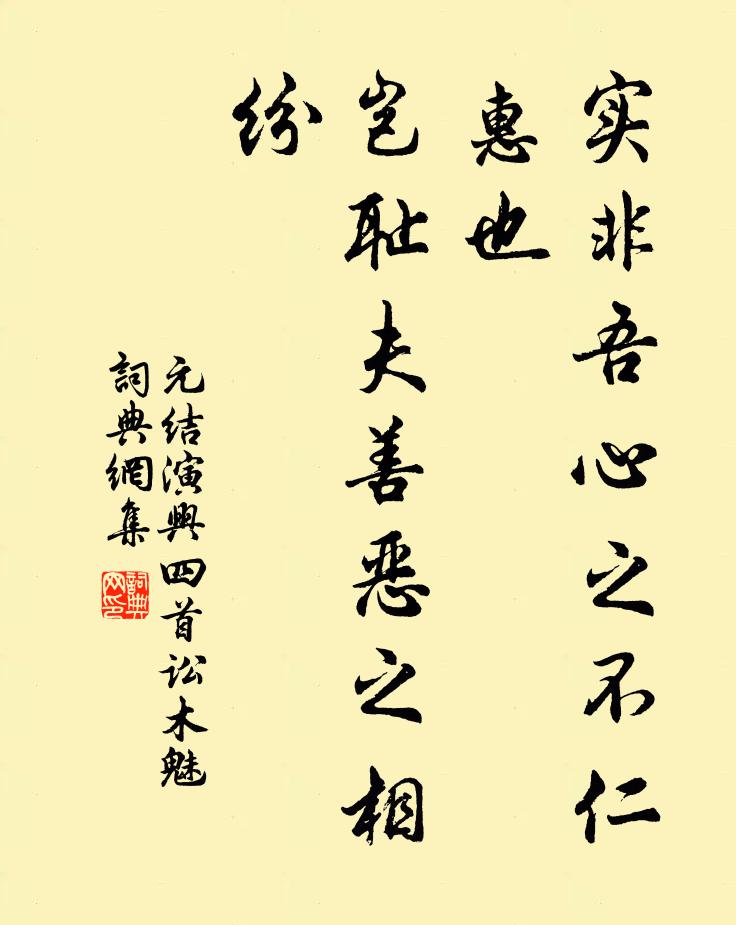 实非吾心之不仁
惠也
岂耻夫善恶之相
纷
元结演興四首讼木魅
詞典網集
詞典网印